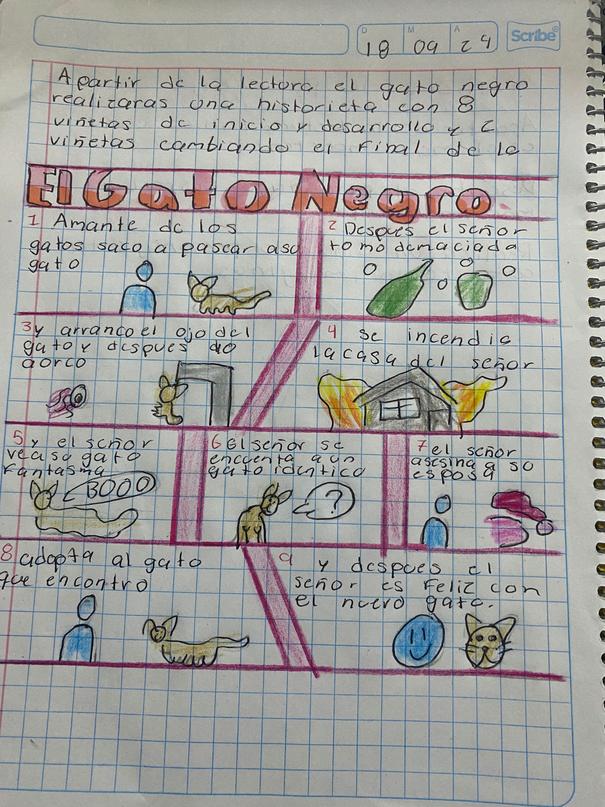 D M A
18 09 24
Scribe
Apartir de la lectora el gato negro
realizaras una historieta con 8
viñetas de inicio y desarrollo y 2
viñetas cambiando el final de lo
El Gato Negro
1 Amante de los
gatos saco a pasear asu
gato
2 Despues el señor
tomo demaciada
3 y arranco el ojo del
gato y despues do
aorco
4 Se incendia
la casa del señor
5 y el señor
ve asu gato
Fantasma
BOOO
6 El señor se
encuenta a un
gato identico
?
7 el señor
asesina a so
esposa
8 adopta al gato
que encontro
9 y despues el
señor es feliz con
el nuevo gato.